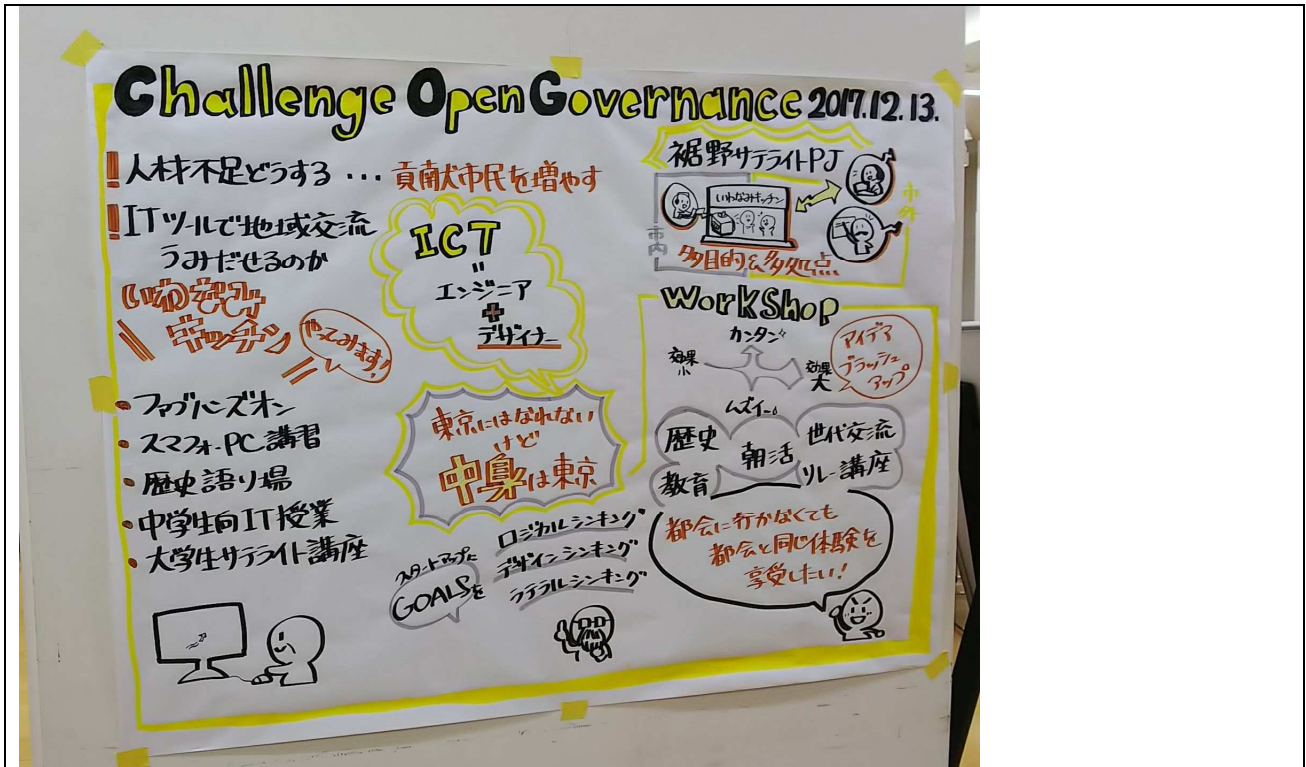 Challenge Open Governance 2017.12.13.
!人材不足どうする…貢献市民を増やす
!ITツールで地域交流
うみだせるのか
いわなみ
キッチン
やってみます!
・ファブハンズオン
・スマフォ・PC講習
・歴史語り場
・中学生向IT授業
・大学生サテライト講座
ICT
=
エンジニア
+
デザイナー
東京にはなれない
けど
中身は東京
スタートアップに
GOALSを
ロジカルシンキング
デザインシンキング
ラテラルシンキング
裾野サテライトPJ
いわなみキッチン
市内
市外
多目的&多拠点
WorkShop
カンタン
効果
小
効果
大
ムズイ。
アイデア
ブラッシュ
アップ
歴史
朝活
世代交流
教育
リレー講座
都会に行かなくても
都会と同じ体験を
享受したい!